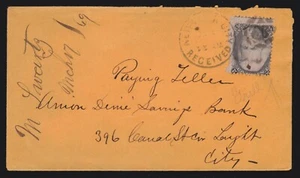 M Swartz
March 17 / 69
RECEIVED
Paying Teller
Union Dime Savings Bank
396 Canal St Cor Laight
City